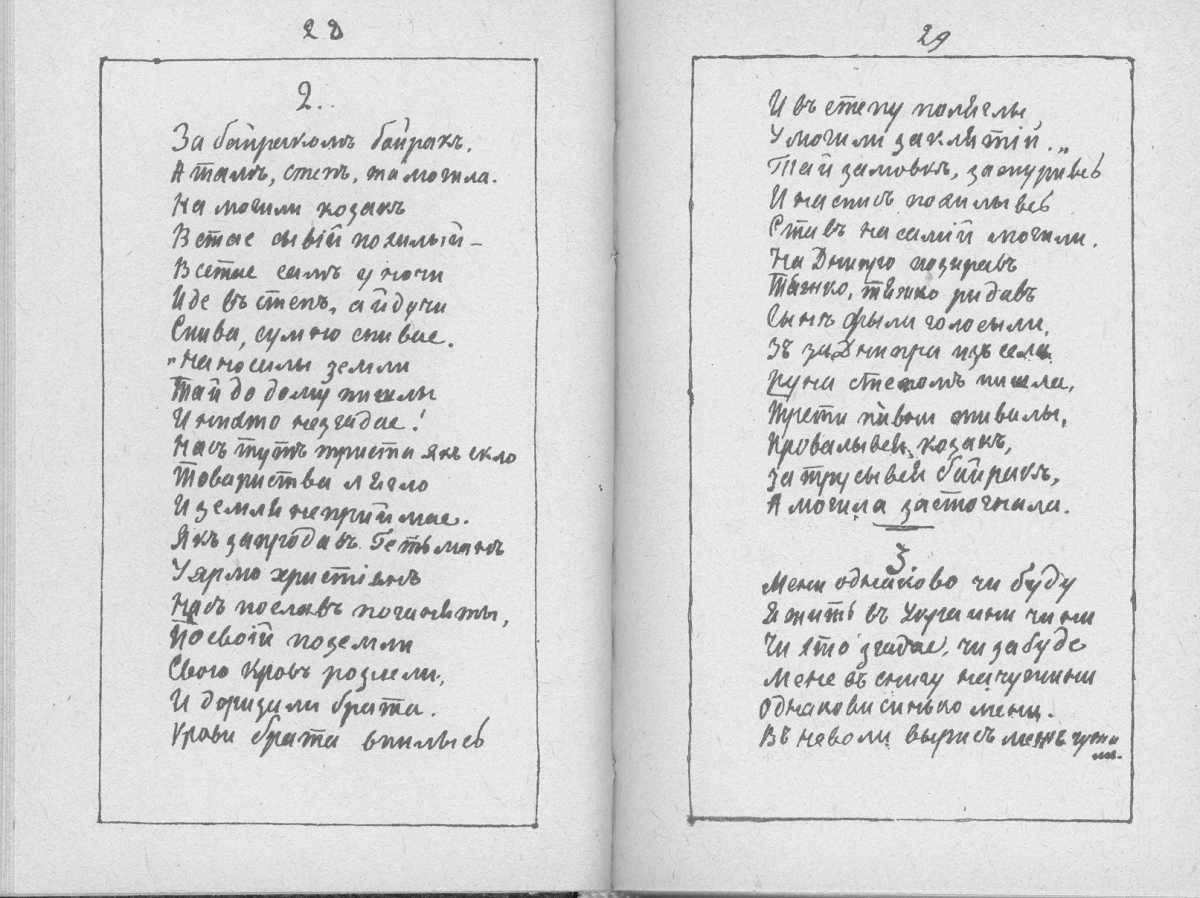 28
2..
За байракомъ байракъ.
А тамъ, степъ, та могила.
На могили козакъ
Встае сывій похилый –
Встае самъ у ночи
Иде въ степъ, а йдучи
Спива, сумно спивае.
„Наносилы земли
Тай до дому пишлы
И нихто незгадае!
Насъ тутъ триста якъ скло
Товариства лягло
И земля неприймае.
Якъ запродавъ Гетьманъ
У ярмо христіянъ
Насъ пославъ поганяты,
По своій поземли
Свою кровъ розлели,
И доризали брата.
Крови брата впилысь
29
И въ степу поляглы,
У могили заклятій.„
Тай замовкъ, зажурывсь
И на списъ похилывсь
Ставъ на самій могили.
На Днипро позиравъ
Тяжко, тяжко ридавъ
Сыни хвыли голосыли.
Зъ за Днипра изъ села
Руна степомъ пишла,
Трети пивни спивалы,
Провалывся козакъ,
Затрусывся байракъ,
А могила застогнала.
3
Мени однаково чи буду
Я жить въ Украини чи ни
Чи хто згадае, чи забуде
Мене въ снигу на чужини
Однаковисинько мени.
Въ неволи вырисъ межъ чужи
ми.